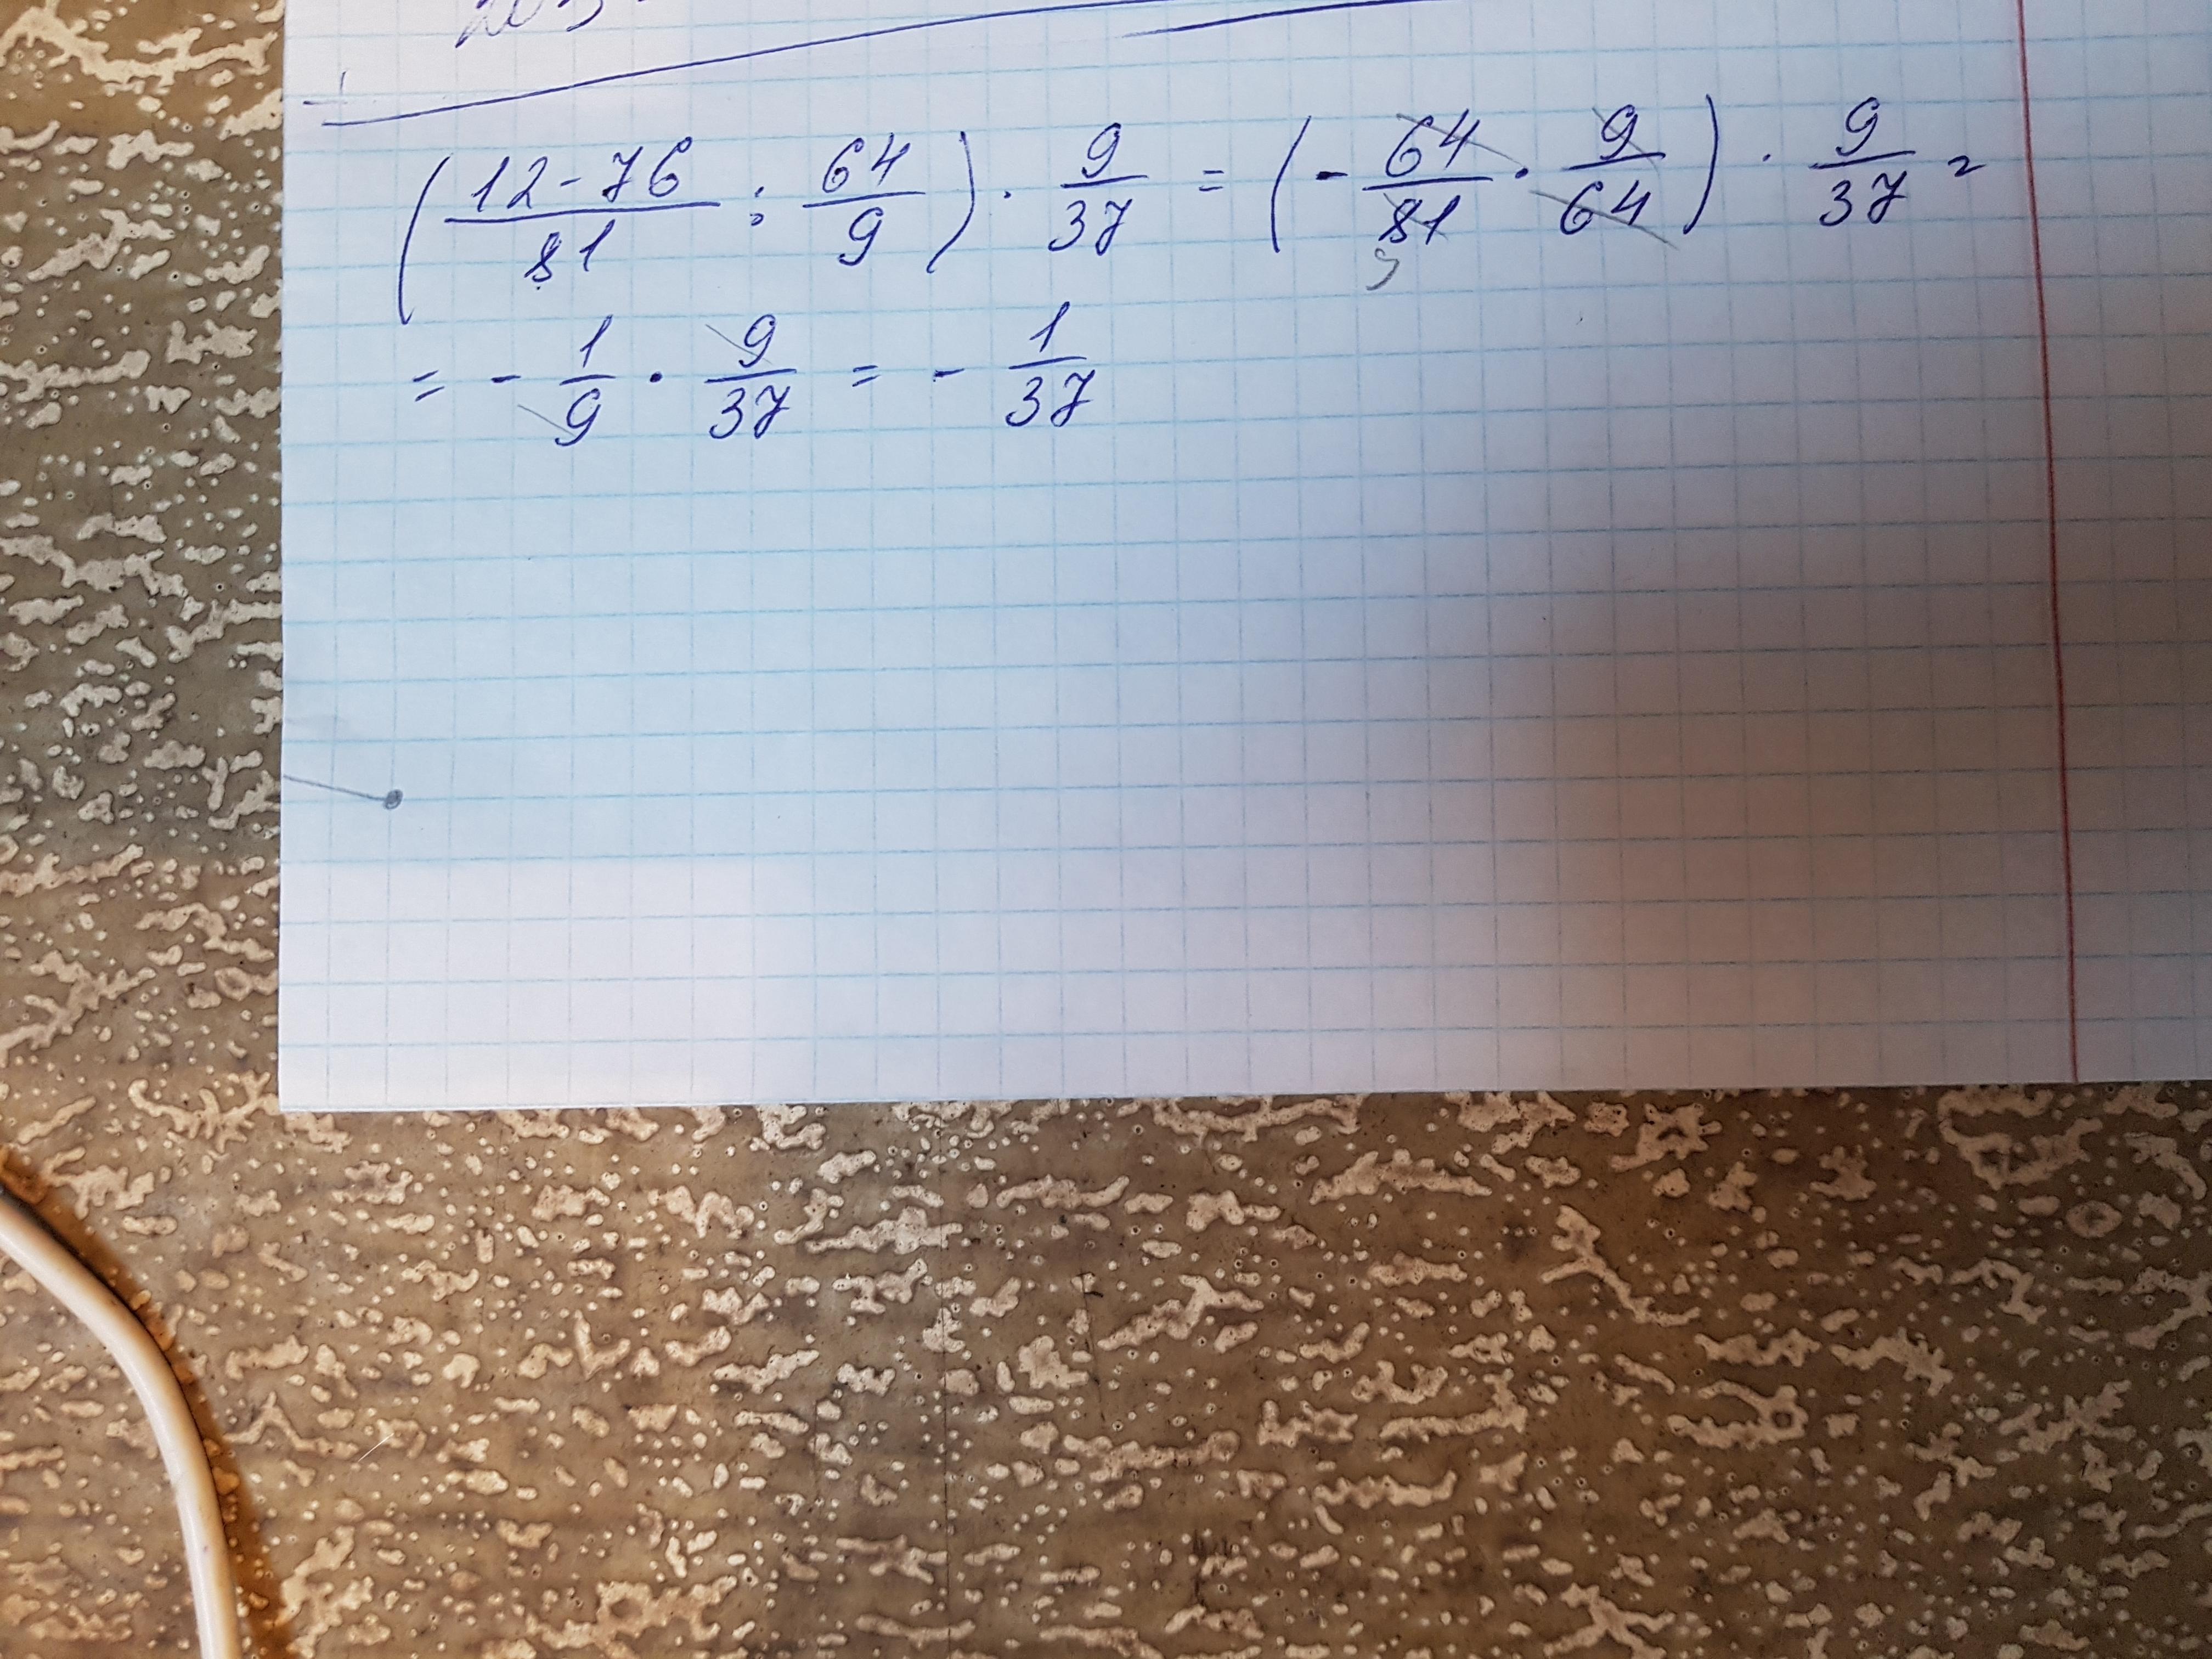 (12-76/81 : 64/9) · 9/37 = (-64/81 · 9/64) · 9/37 =
9
= - 1/9 · 9/37 = - 1/37